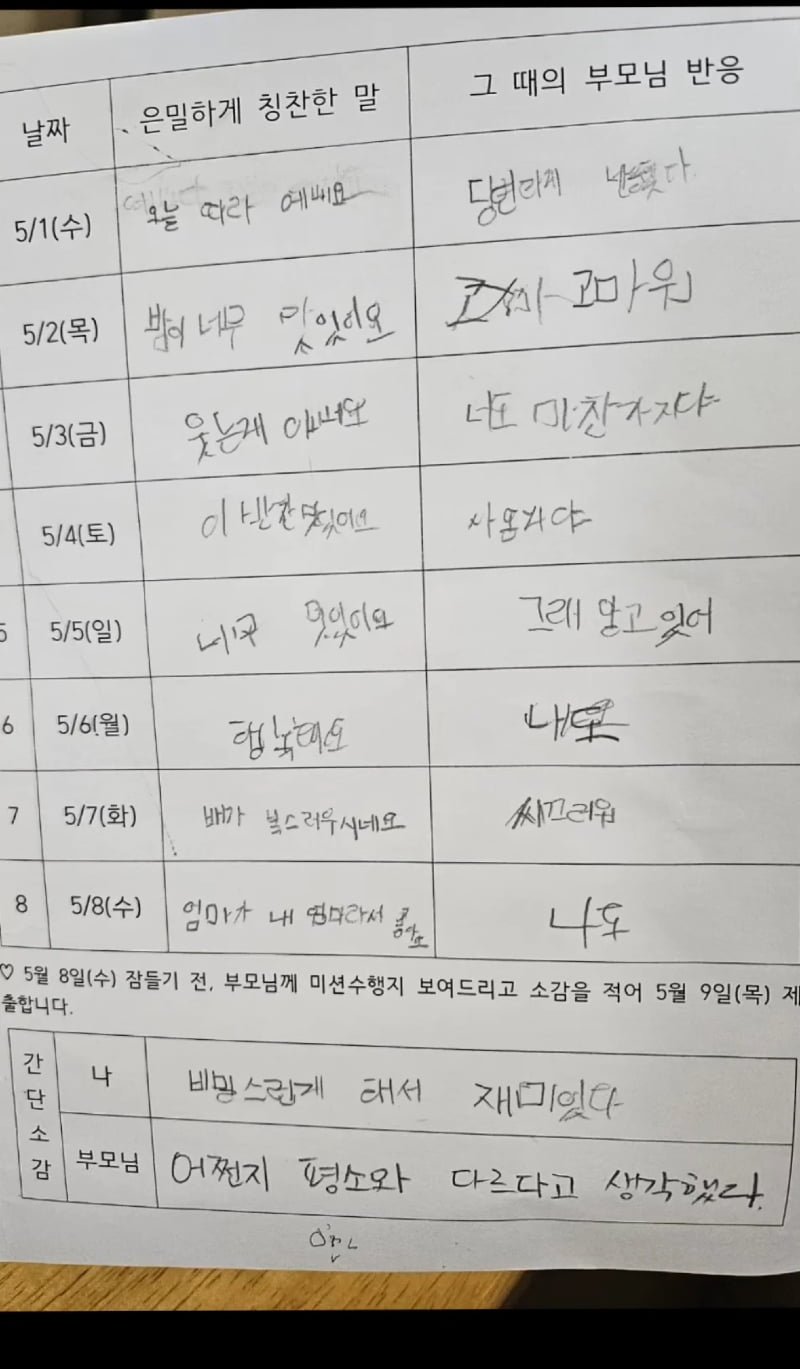 날짜 은밀하게 칭찬한 말 그 때의 부모님 반응
5/1(수) 오늘 따라 예뻐요
5/2(목) 밥이 너무 맛있어요 고마워
5/3(금) 웃는게 너도 마찬가지야
5/4(토) 이 반찬 맛있어요
5 5/5(일) 너무 멋있어요 그래 알고 있어
6 5/6(월) 행복해요 나도
7 5/7(화) 배가 복스러우시네요 씨끄러워
8 5/8(수) 엄마가 내 엄마라서 나도
♡ 5월 8일(수) 잠들기 전, 부모님께 미션수행지 보여드리고 소감을 적어 5월 9일(목) 제
출합니다.
간단소감
나 비밀스럽게 해서 재미있다
부모님 어쩐지 평소와 다르다고 생각했다.